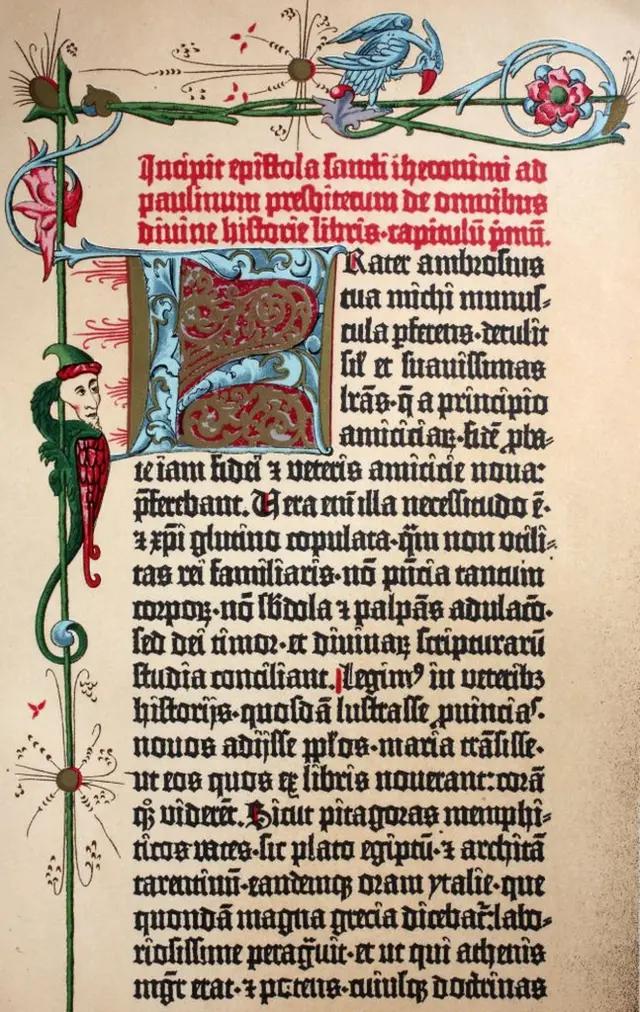 Incipit epistola sancti iheronimi ad
paulinum presbiterum de omnibus
divine historie libris·capitulū pmū.
FRater ambrosius
tua michi munus-
cula pferens·detulit
sil̄ et suavissimas
lrās·q̄ a principio
amiciciaꝝ·fidē pba-
te iam fidei ⁊ veteris amicicie nova:
pferebant. Vera eni illa necessitudo ē·
⁊ xp̄i glutino copulata·q̄m non utili-
tas rei familiaris·nō pn̄cia tantum
corpoꝝ·nō sb̄dola ⁊ palpās adulaco·
sed dei timor·et divinaꝝ scripturarū
studia conciliant. Legimꝰ in veteribꝫ
historijs·quosdā lustrasse puincias·
novos adijsse pp̄los·maria trāsisse·
ut eos quos ex libris noverant: corā
qꝫ viderēt. Sicut pitagoras memphi-
ticos vates·sic plato egiptū·⁊ architā
tarentinū·eandemqꝫ oram ytalie·que
quondā magna grecia dicebat̄: labo-
riosissime peragvit·et ut qui athenis
mgr̄ erat·⁊ potens·cuiusqꝫ doctrinas